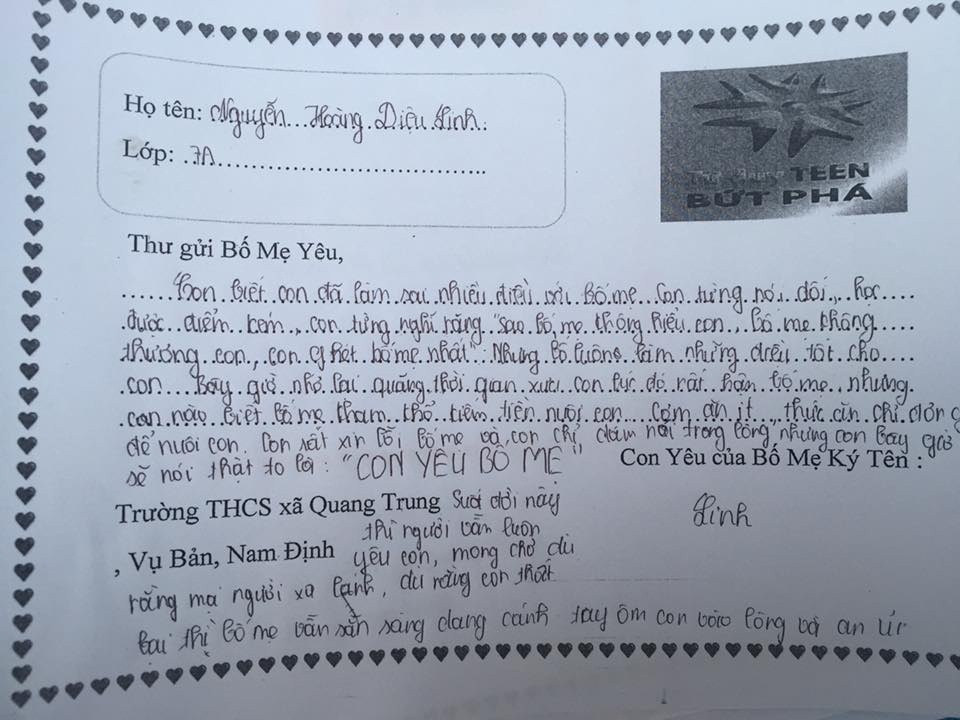 Họ tên: Nguyễn Hoàng Diệu Linh
Lớp: 7A
TEEN
BỨT PHÁ
Thư gửi Bố Mẹ Yêu,
Con biết con đã làm sai nhiều điều với bố mẹ. Con từng nói dối, học
được điểm kém, con từng nghĩ rằng "sao bố mẹ không hiểu con, bố mẹ không
thương con, con ghét bố mẹ nhất". Nhưng bố luông làm những điều tốt cho
con. Bây giờ nhớ lại quãng thời gian xưa con lúc đó rất hận bố mẹ nhưng
con nào biết bố mẹ tham thổ tiêm tiền nuôi con. Cơm ăn ít, thức ăn chỉ
để nuôi con. Con sất xin lỗi bố mẹ và con chỉ dám nói trong lòng nhưng con bây giờ
sẽ nói thật to là: "CON YÊU BỐ MẸ"
Con Yêu của Bố Mẹ Ký Tên :
Linh
Trường THCS xã Quang Trung
, Vụ Bản, Nam Định
Suốt đời này
thì người vẫn luôn
yêu con, mong chờ dù
rằng mọi người xa lánh, dù rằng con thất
bại thì bố mẹ vẫn sẵn sàng dang cánh tay ôm con vào lòng và an ủi